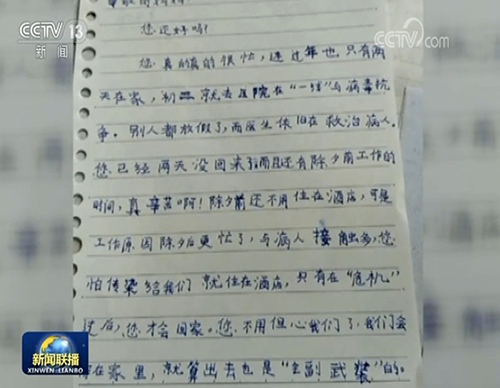 CCTV 13
新闻
CCTV.com
央视网
妈妈：
您还好吗？
您真的真的很忙，连过年也只有两
天在家，初二就去医院在“一线”与病毒抗
争。别人都放假了，而医生依旧在救治病人。
您已经两天没回来了而且还有除夕前工作的
时间，真辛苦啊！除夕前还不用住在酒店，可是
工作原因除夕后更忙了，与病人接触多，您
怕传染给我们就住在酒店，只有在“危机”
过后，您才会回家。您不用但心我们了，我们会
在家里，就算出去也是“全副武装”的。
新闻联播
XINWEN LIANBO